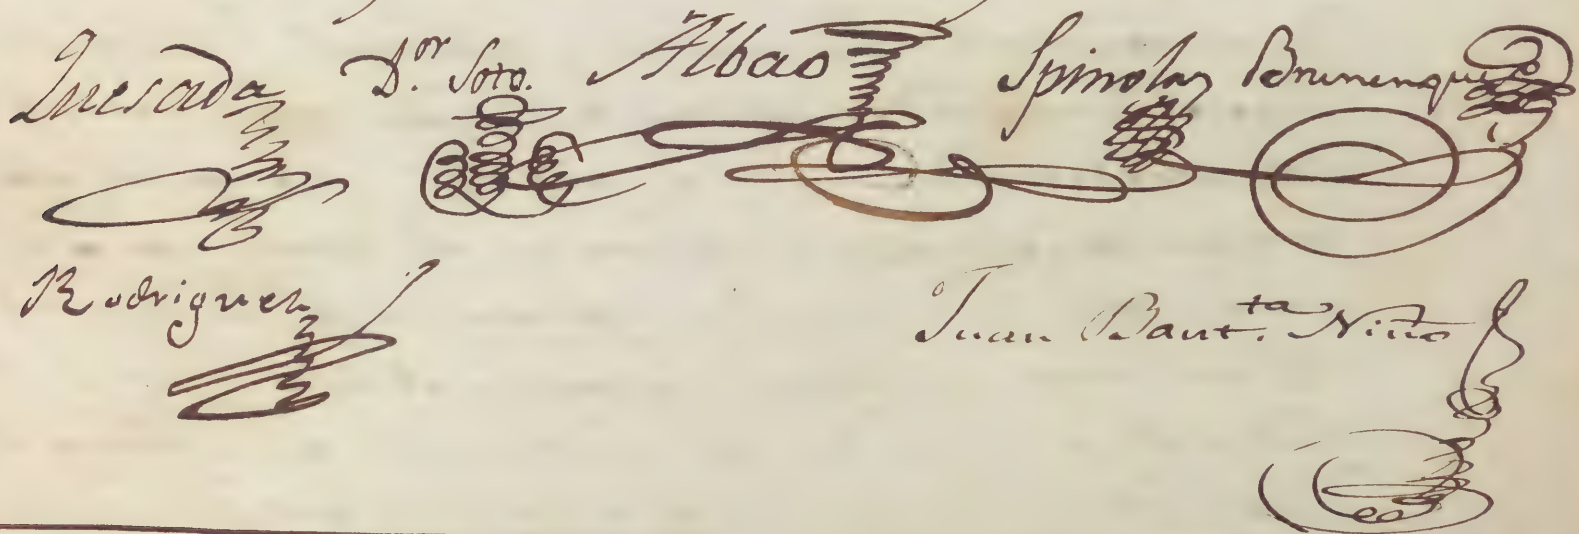 Quesada D.or Soto. Albao Spinola Brunenque
Rodriguez Juan Baut.ta Nieto